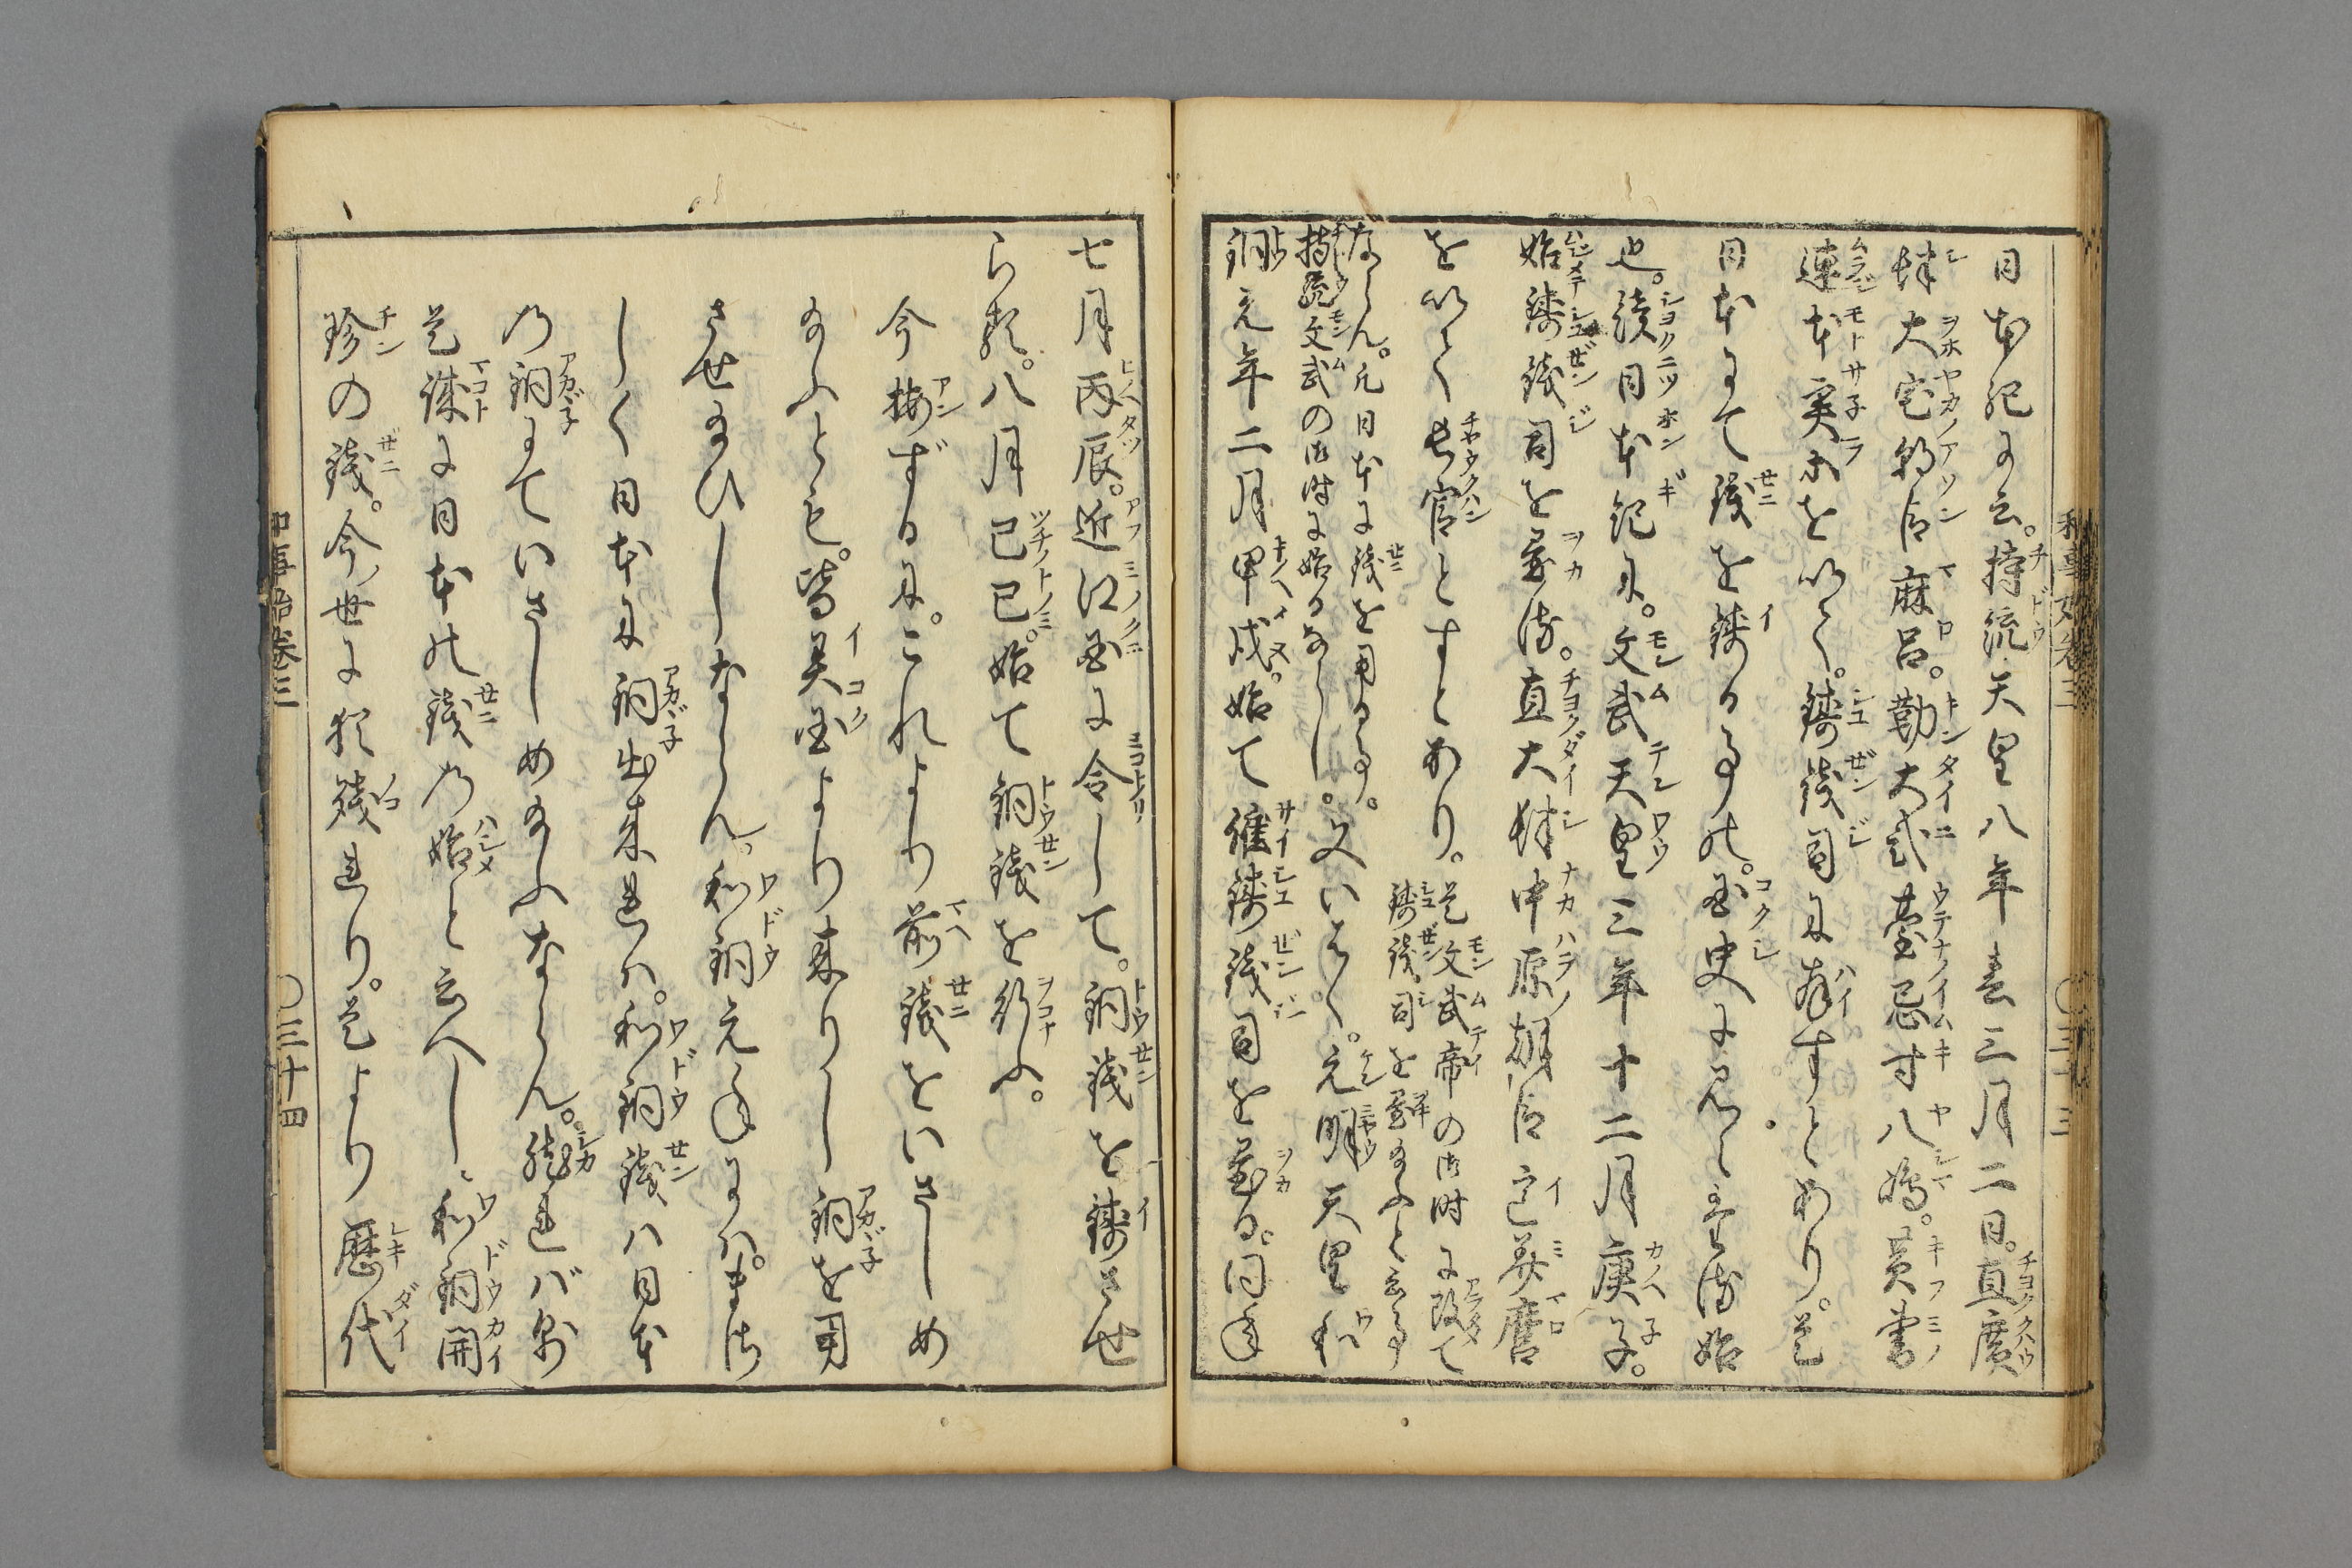 日本紀に云。持統天皇八年春三月二日。直廣
肆大宅朝臣麻呂。勤大貳臺忌寸八嶋。黄書
連本実等を以て。鋳銭司に拝すとあり。是
日本にて銭を鋳る事の。国史に見へ(え)たる始
也。続日本紀に。文武天皇三年十二月庚子。
始鋳銭司を置く。直大肆中原朝臣意美麿
を以て長官とすとあり。是文武帝の御時に改て
鋳銭司を置給ふと云事
ならん。凡日本に銭を用る事。
持統文武の御時に始るなるべし。又いはく。元明天皇和
銅元年二月甲戌。始て催鋳銭司を置る。同年
七月丙辰。近江国に令して。銅銭を鋳させ
らる。八月己巳。始て銅銭を行ふ。
今按ずるに。これより前銭をいさしめ
給ふといへども。皆異国より来りし銅を用
させ給ひしならん。和銅元年には。まさ
しく日本に銅出来れハ。和銅銭ハ日本
の銅にていさしめ給ふならん。然れバ別
是誠に日本の銭の始と云へし。和銅開
珍の銭。今ノ世に猶残れり。是より歴代
和事始巻三
〇三十三
和事始巻三
〇三十四